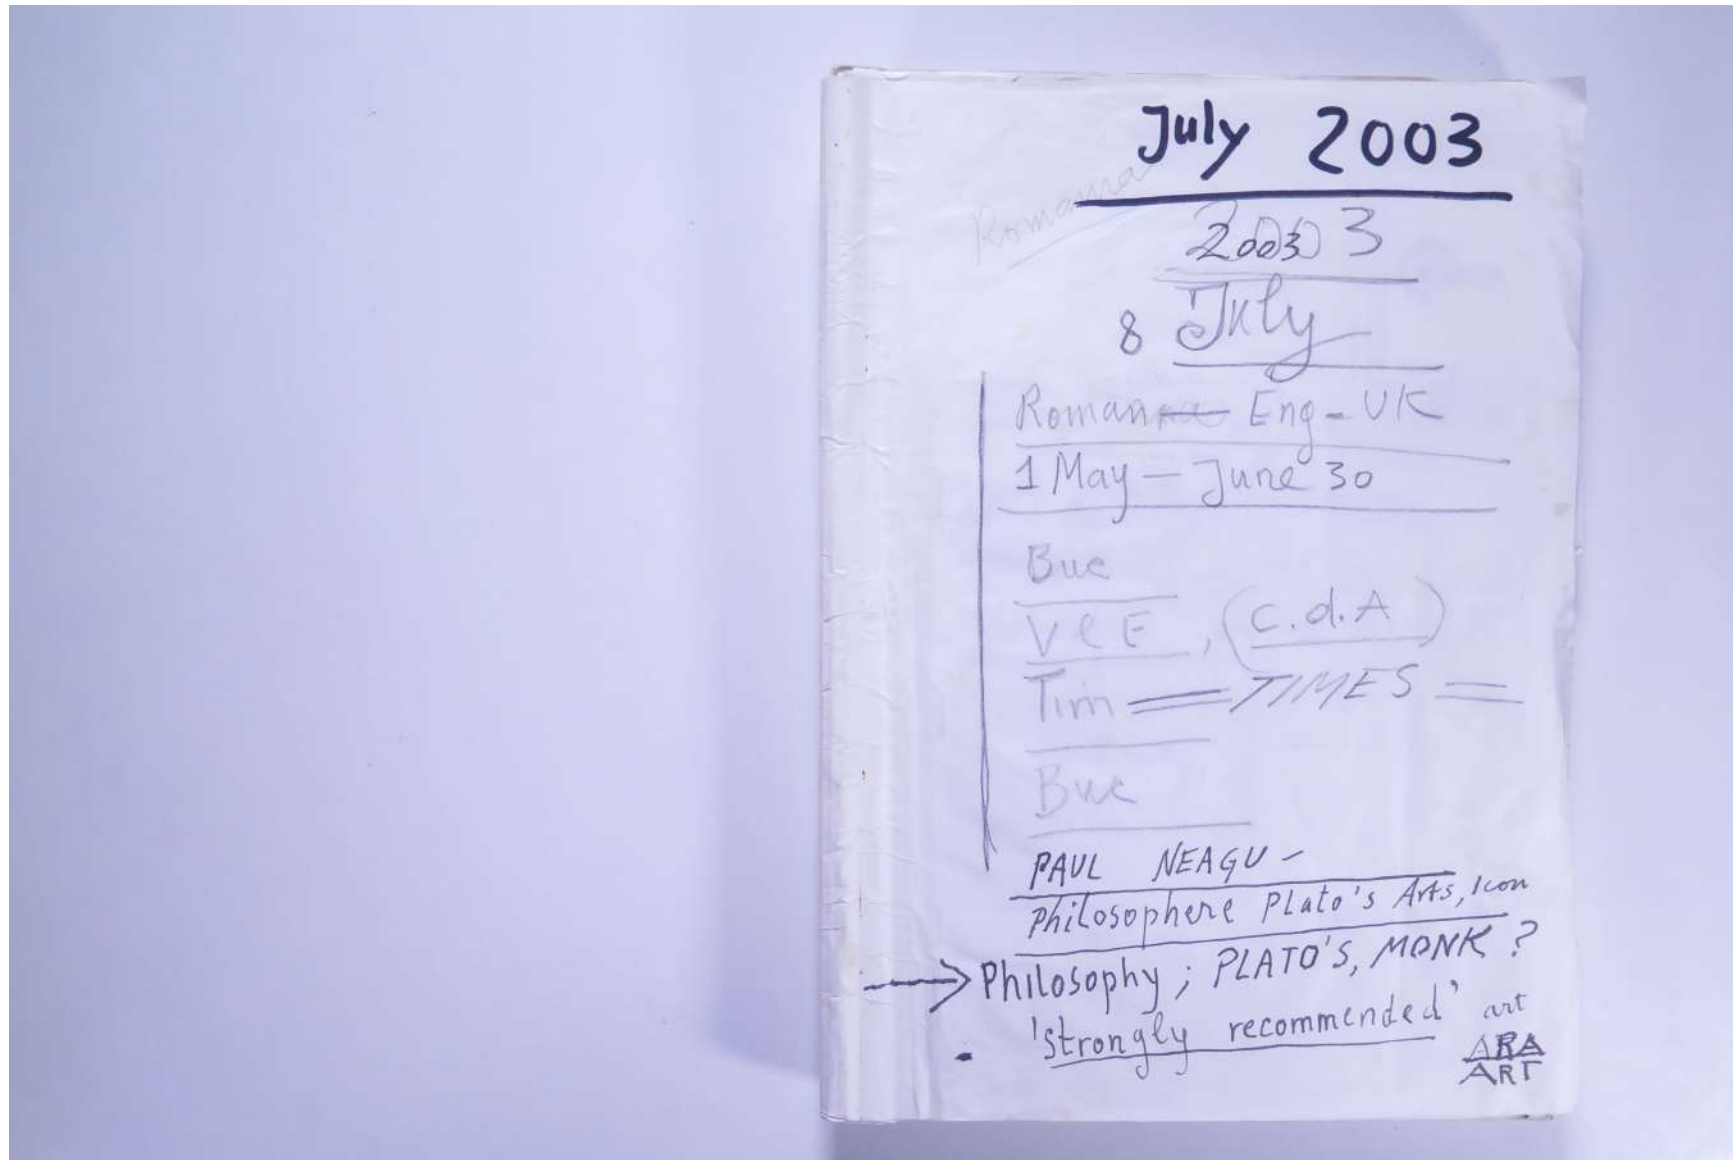 July 2003
Romania
2003 3
8 July
Roman Eng - UK
1 May — June 30
Buc
VCE, (C.d.A)
Tim = TIMES =
Buc
PAUL NEAGU -
Philosophere Plato's Arts, Icon
→ Philosophy ; PLATO'S, MONK ?
'strongly recommended' art
ARA
ART